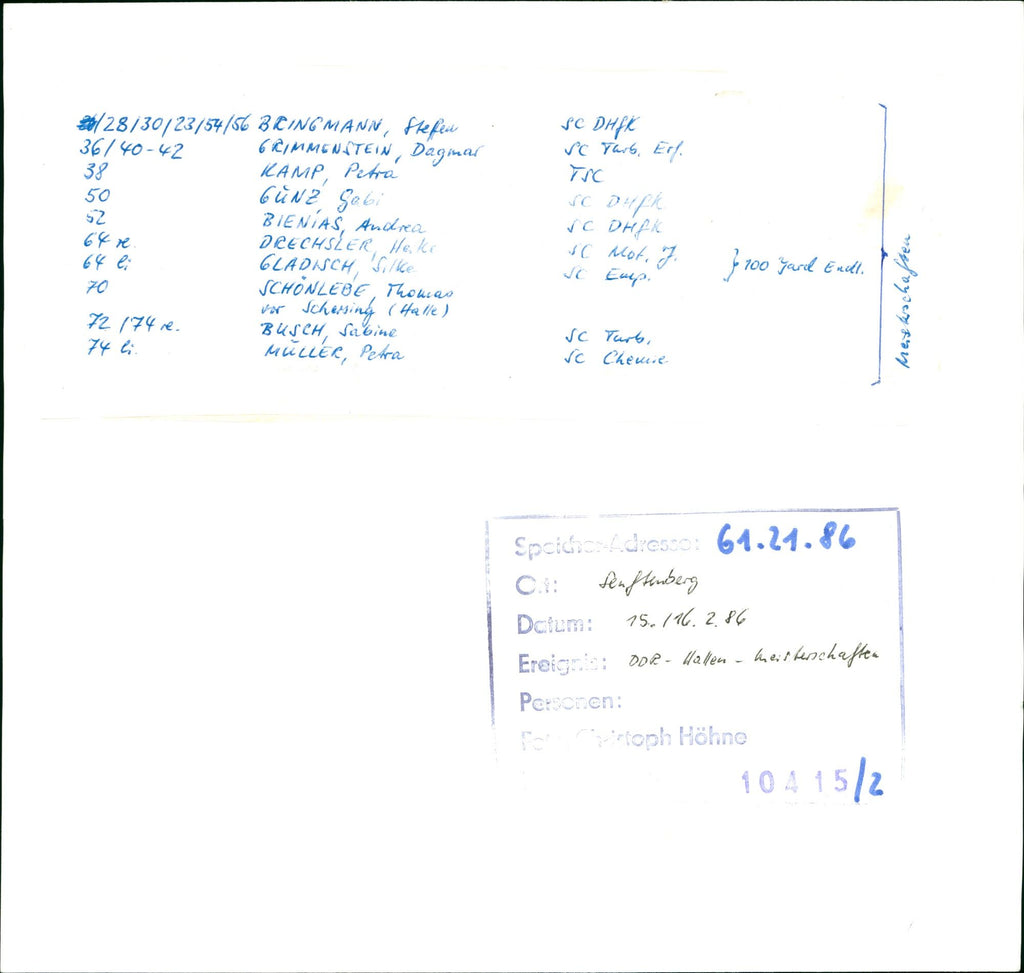 /28/30/23/54/56 BRINGMANN, Steffen SC DHfK
36/40-42 GRIMMENSTEIN, Dagmar SC Turb. Erf.
38 KAMP, Petra TSC
50 GÜNZ, Gabi SC DHfK
52 BIENIAS, Andrea SC DHfK
64 re. DRECHSLER, Heike SC Mot. J.
64 li GLADISCH, Silke SC Emp.
} 100 Yard Endl.
70 SCHÖNLEBE, Thomas
vor Schersing (Halle)
72 / 74 re. BUSCH, Sabine SC Turb.
74 li. MÜLLER, Petra SC Chemie
Meisterschaften
Speicher-Adresse: 61.21.86
Ort: Senftenberg
Datum: 15./16. 2. 86
Ereignis: DDR-Hallen-Meisterschaften
Personen:
Foto: Christoph Höhne
10415/2